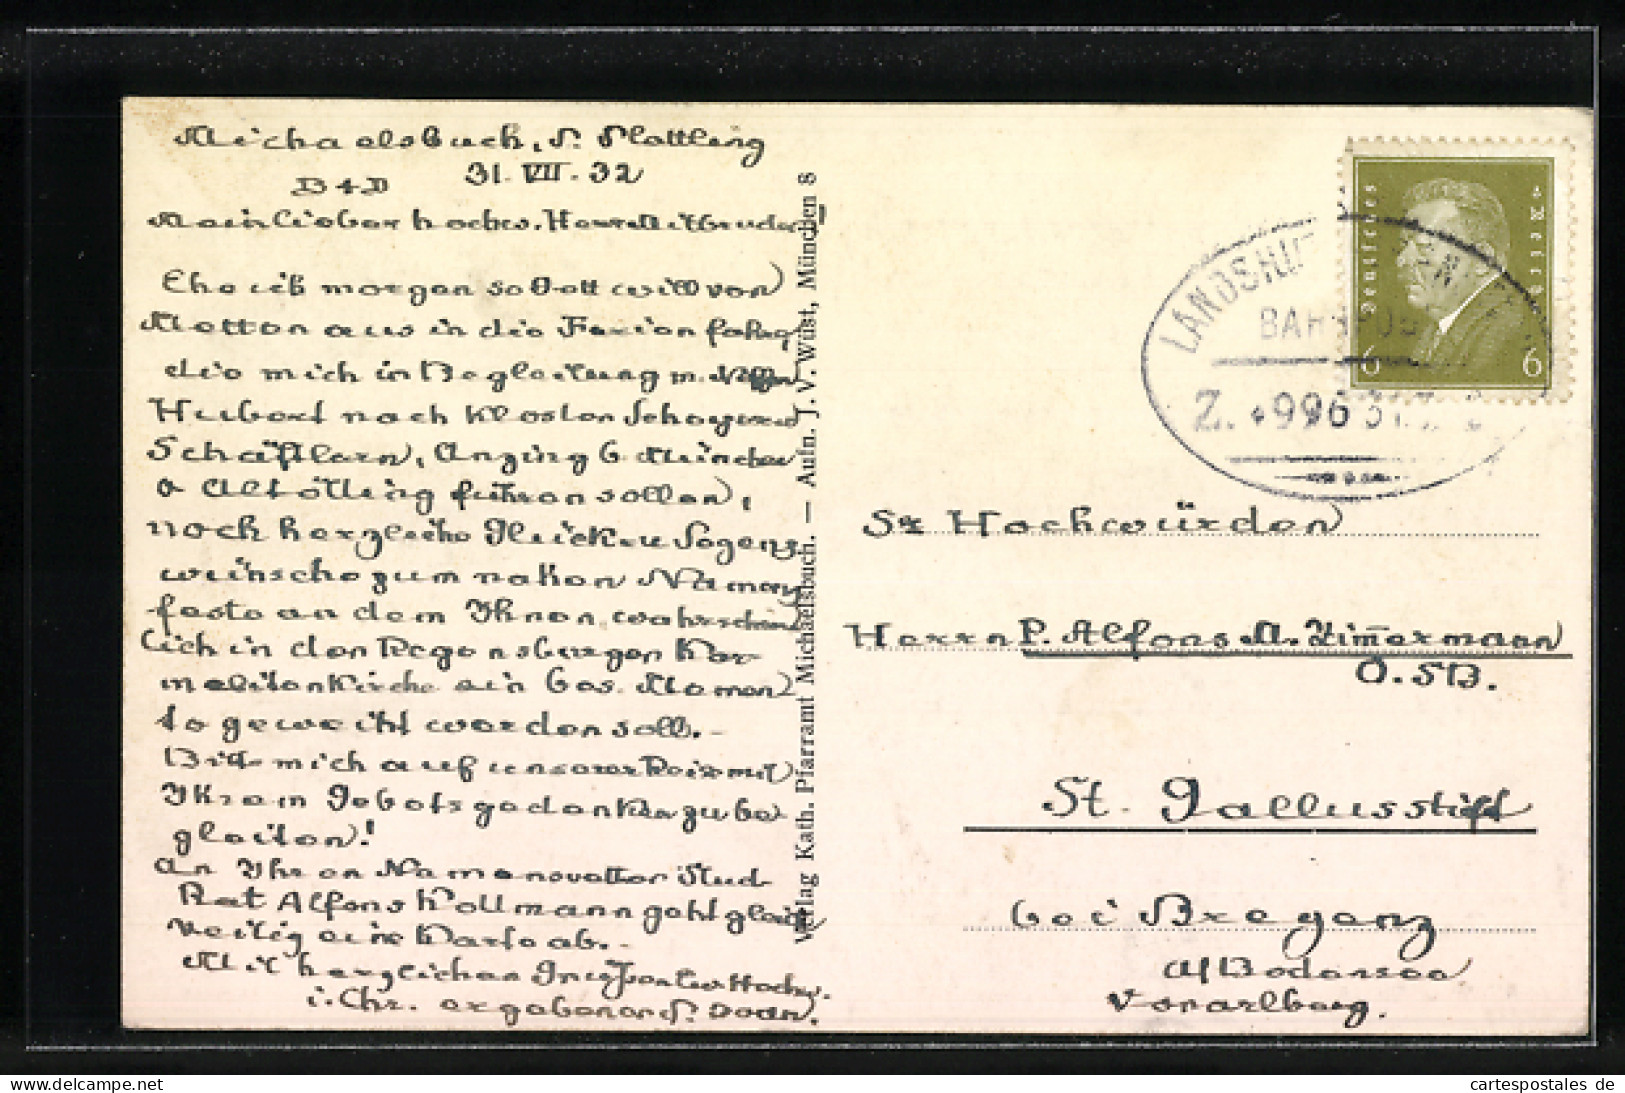 Michaelsbuch, P. Plattling
31. VII. 32
Mein lieber hochw. Herr Mitbruder
Ehe ich morgen so Gott will von
Metten aus in die Ferien fahre
die mich in Begleitung m. Neffen
Hubert nach Kloster Scheyern
Schäftlarn, Anzing b. München
& Altötting führen sollen,
noch herzliche Glück- u Segens
wünsche zum nahen Namens
feste an dem Ihnen wahrschein
lich in der Regensburger Kar
melitenkirche ein bes. Memen
to geweiht werden soll.-
Bitte mich auf unserer Reise mit
Ihrem Gebetsgedenken zu be
gleiten!
An Ihren Namensvetter Stud
Rat Alfons Kollmann geht gleich
zeitig eine Karte ab.-
Mit herzlichen Grüssen Ew Hochw.
i. Chr. ergebener P.
Verlag Kath. Pfarramt Michaelsbuch. — Aufn. J. V. Wüst, München 8
Deutsches Reich
6 6
LANDSHUT
BAHNPOST
Z. 996 31.
Sr Hochwürden
Herrn P. Alfons M. Zimmermann
O.SB.
St. Gallusstift
bei Bregenz
a/Bodensee
Vorarlberg.
www.cartespostales.de
cartespostales de